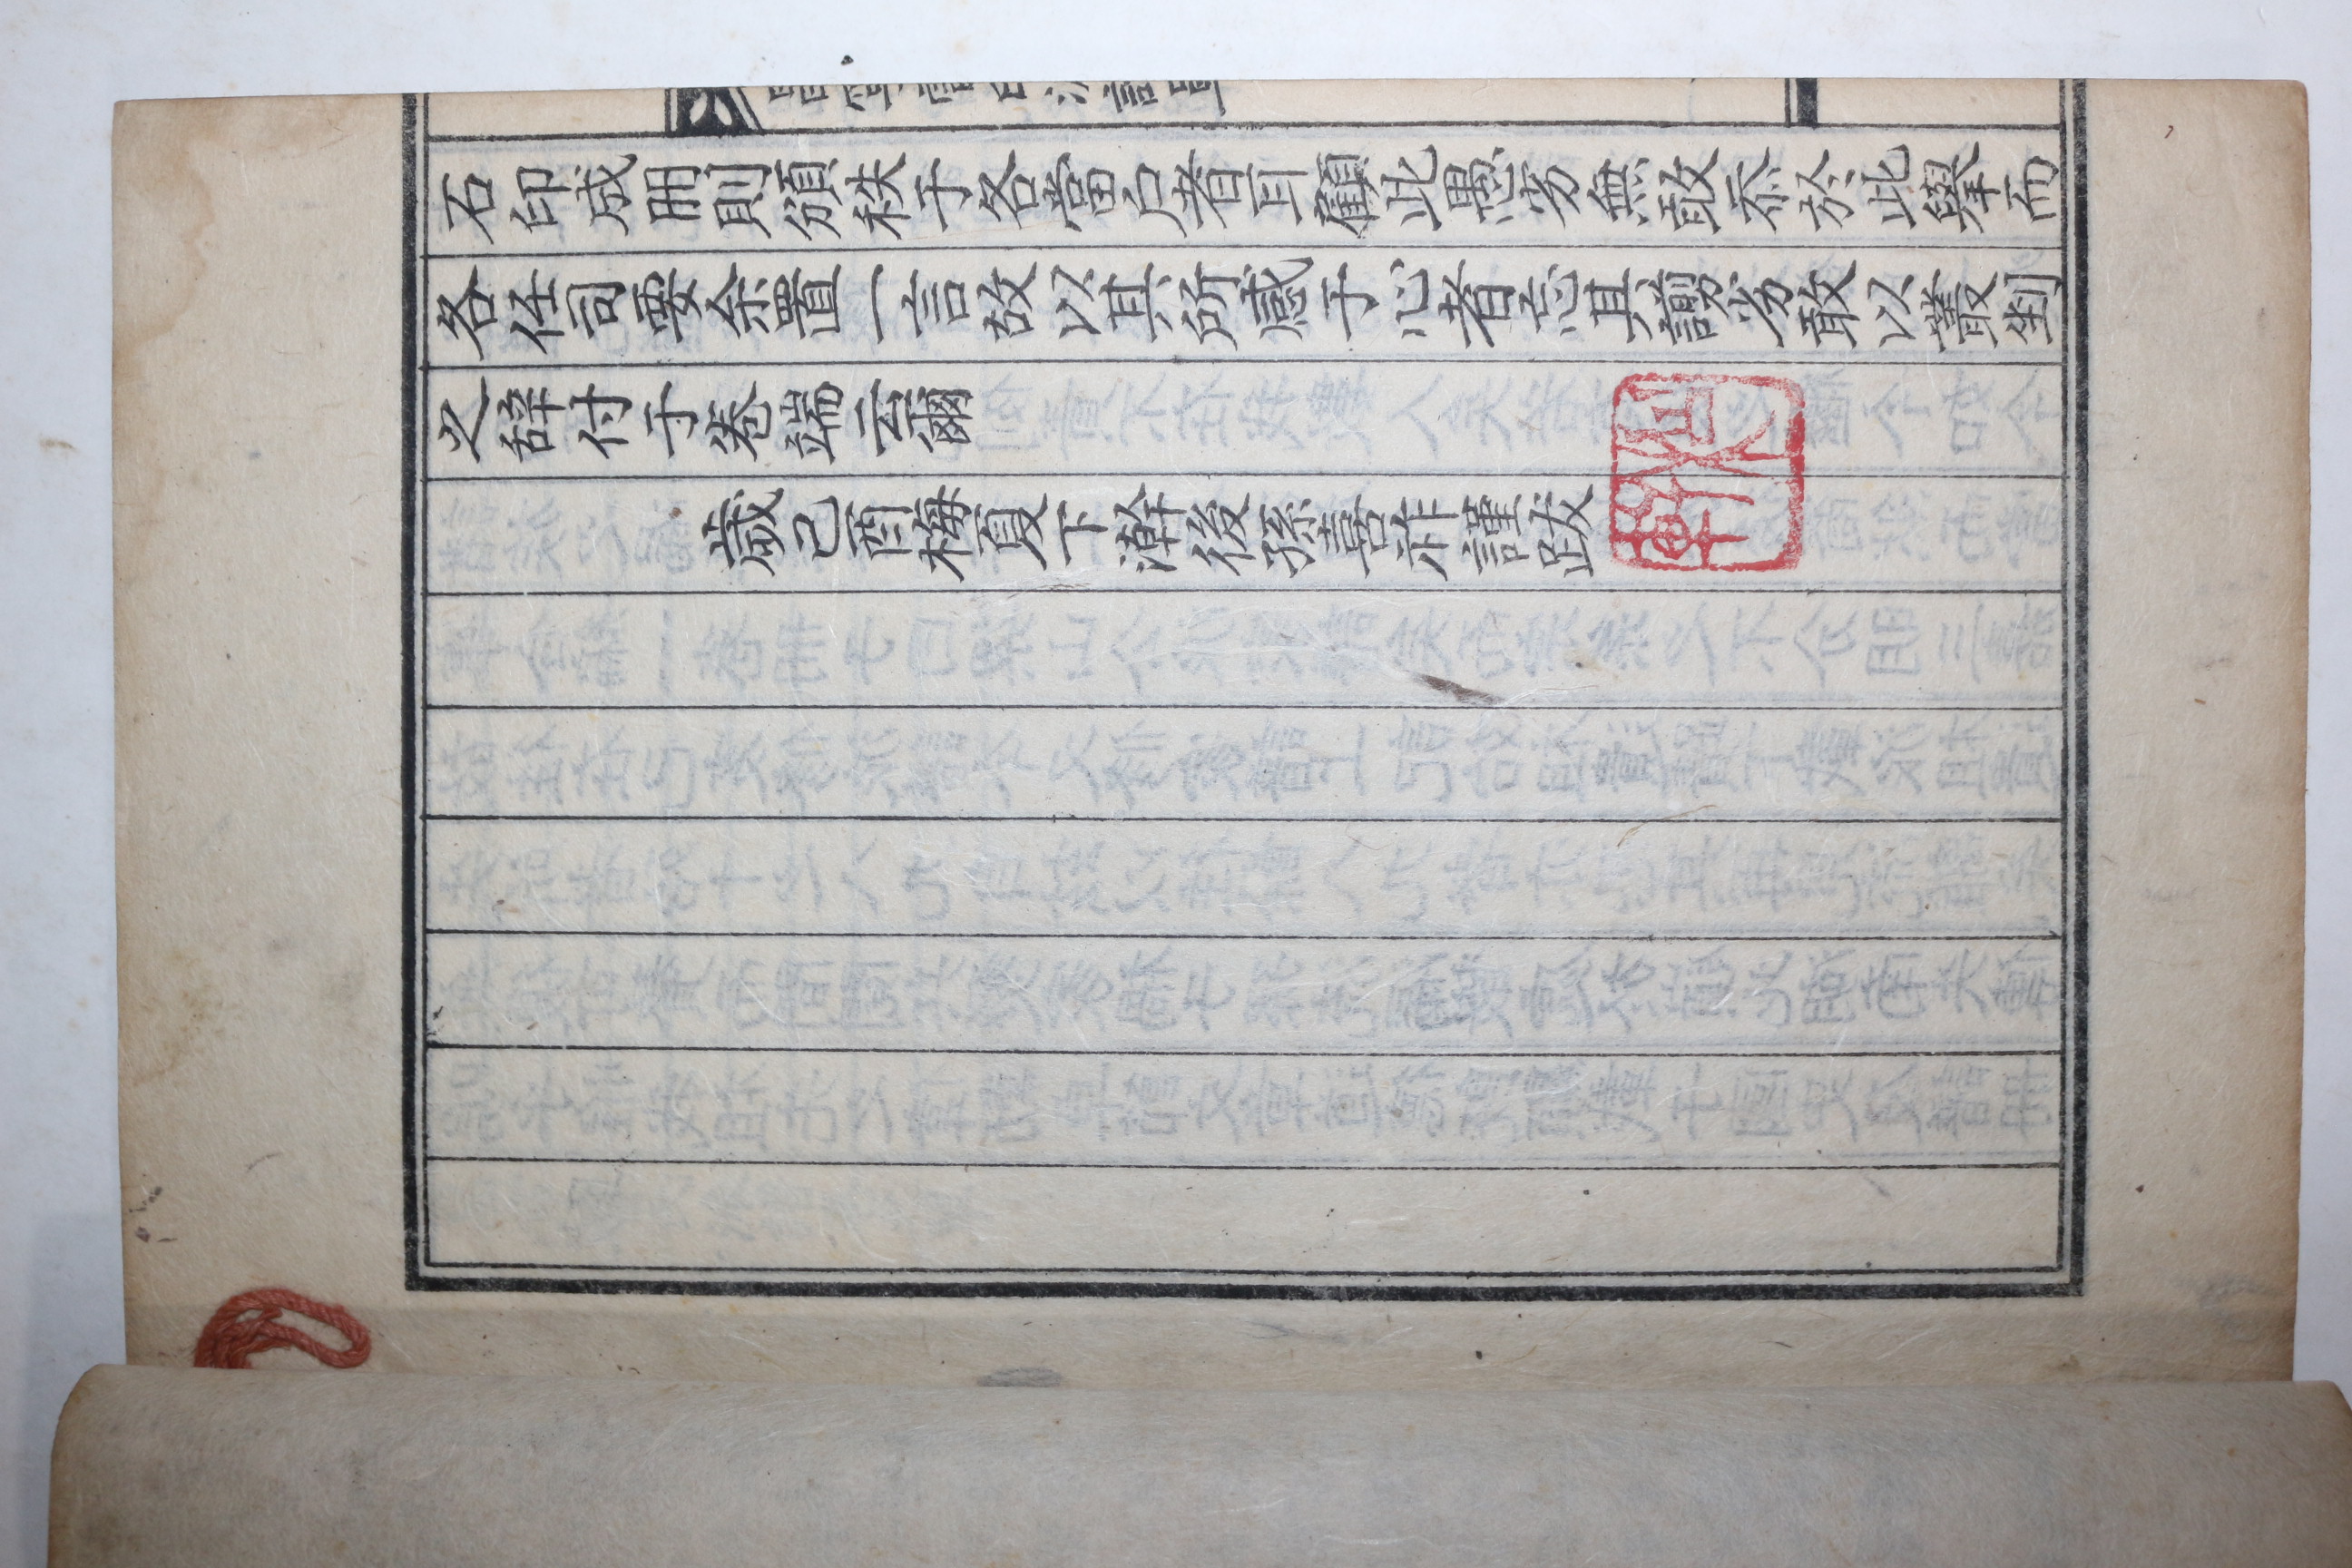 石印成冊則頒秩于各當户者耳顧此愚劣無敢忝於此擧而
各任司要余置一言故以其所感于心者忘其謭劣敢以叢剉
之辞付于卷端云爾
歲己酉梅夏下澣後孫喜祚謹跋
軒